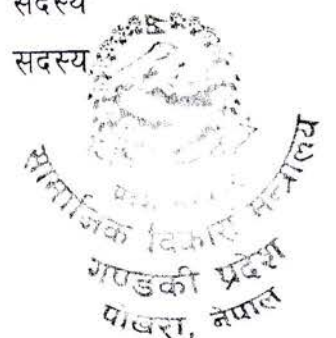 सदस्य
सदस्य
सामाजिक विकास मन्त्रालय
गण्डकी प्रदेश
पोखरा, नेपाल